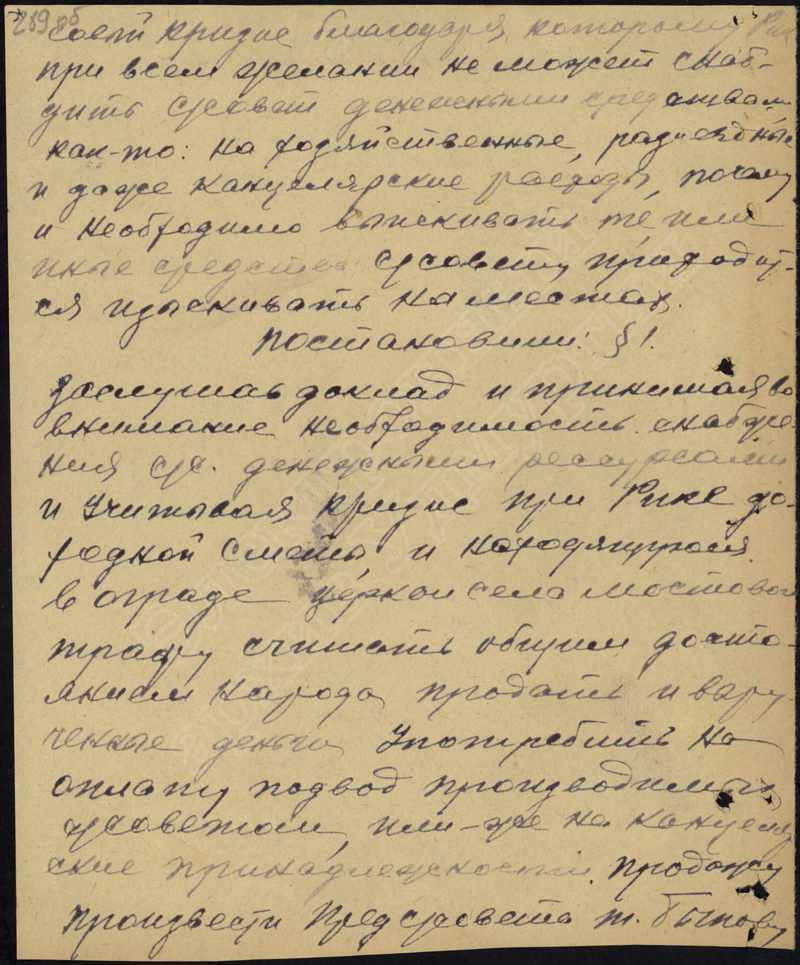 259 об
соели кризис благодаря, которому Рик
при всем желании не может снаб-
дить с/совет денежными средствами
как-то: на хозяйственные, разъездные
и даже канцелярские расходы, почему
и необходимо выискивать те, или
иные средства с/совету, приходит-
ся изыскивать на местах.
постановили: § 1.
Заслушав доклад и принимая во
внимание необходимость снабже-
ния с/с. денежными рессурсами
и Учитывая кризис при Рике до-
ходной сметы, и находящуюся
в ограде церкви села Мостовой
траву считать общим досто-
янием народа, продать и выру-
ченные деньги, Употребить на
оплату подвод производимых
с/советом, или-же на канцеляр
ские принадлежности, продажу
произвести Пред с/совета т. Быкову